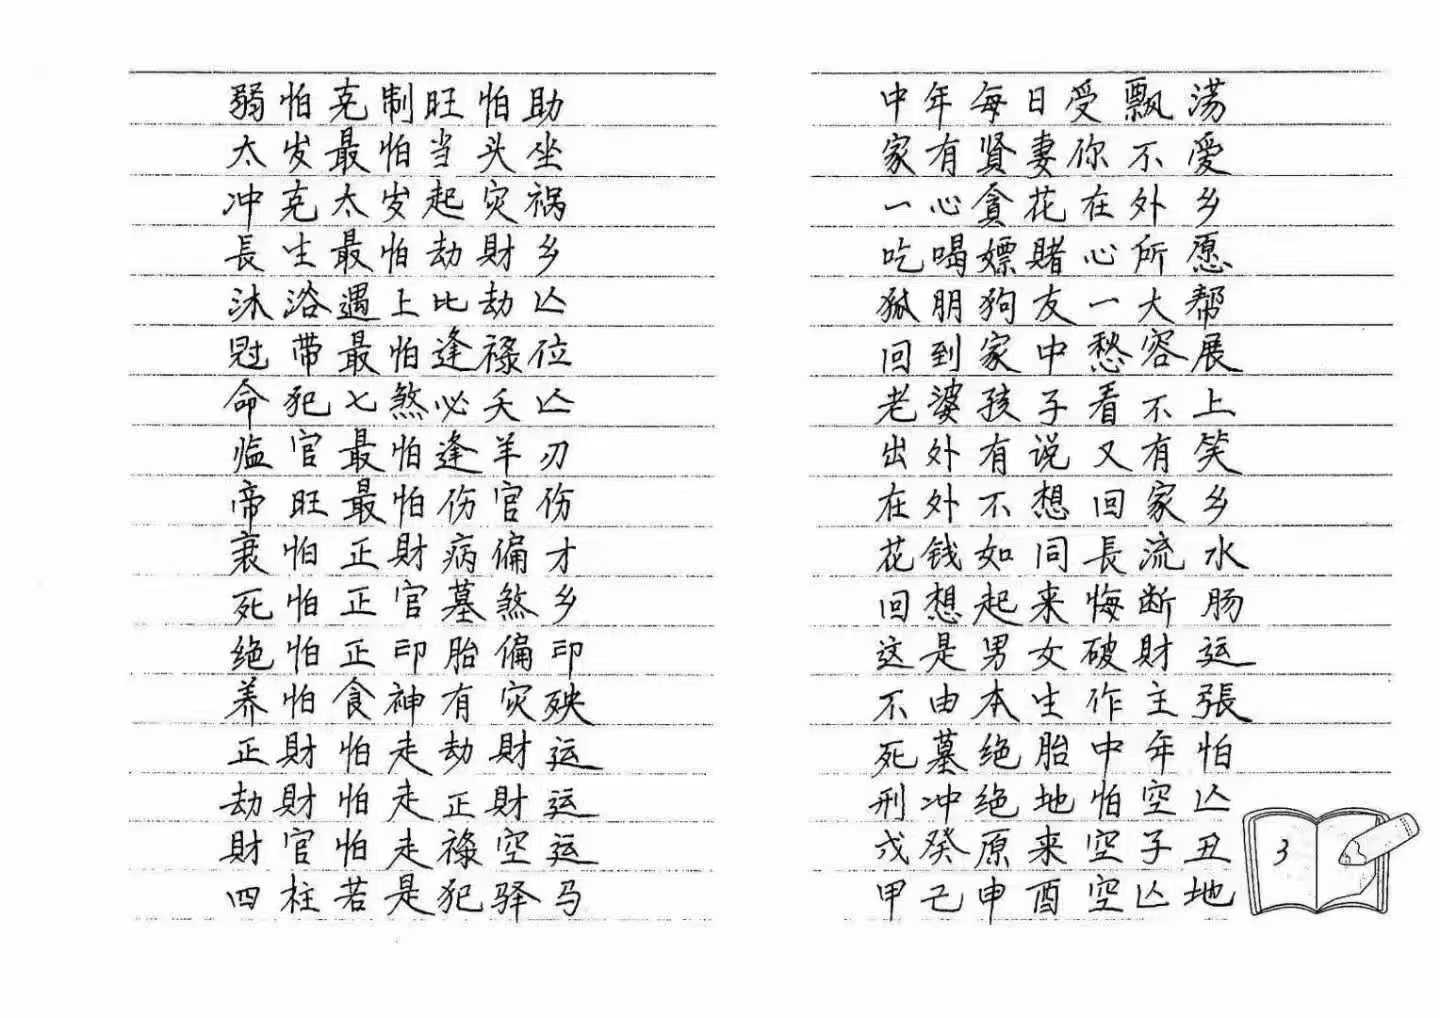 弱怕克制旺怕助
太岁最怕当头坐
冲克太岁起灾祸
長生最怕劫財乡
沐浴遇上比劫亡
冠带最怕逢禄位
命犯七煞必夭亡
临官最怕逢羊刃
帝旺最怕伤官伤
衰怕正財病偏才
死怕正官墓煞乡
绝怕正印胎偏印
养怕食神有灾殃
正財怕走劫財运
劫財怕走正財运
財官怕走禄空运
四柱若是犯驿马
中年每日受飘荡
家有贤妻你不愛
一心貪花在外乡
吃喝嫖賭心所愿
狐朋狗友一大帮
回到家中愁容展
老婆孩子看不上
出外有说又有笑
在外不想回家乡
花钱如同長流水
回想起来悔断肠
这是男女破財运
不由本生作主張
死墓绝胎中年怕
刑冲绝地怕空亡
戊癸原来空子丑
甲己申酉空亡地
3